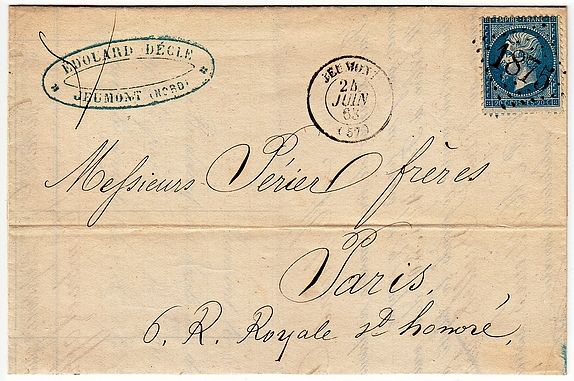 EDOUARD DÉCLE
JEUMONT (NORD)
JEUMONT
24
JUIN
63
(57)
EMPIRE FRANC
1875
20 20
Messieurs Périer frères
Paris,
6, R. Royale St honoré,